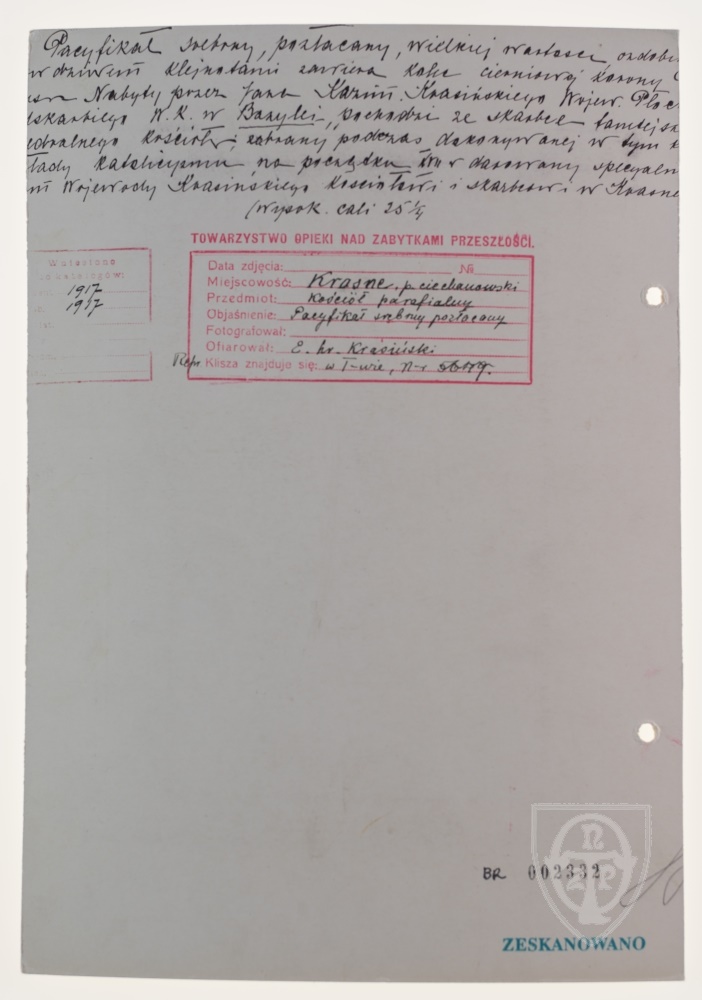 Pacyfikał srebrny, pozłacany, wielkiej wartości, ozdobi
klejnotami zawiera kolec cierniowej korony
Nabyty przez Jana Kazim. Krasińskiego Wojew. Płoc
skarbiego W. K. w Bazylei, pochodzi ze skarbca tamtejsz
edralnego kościoła; zabrany podczas dokonywanej w tym
katolicyzmu na początku darowany specjaln
Wojewody Krasińskiego kościołowi i skarbcowi w Krasne
(Wysok. cali 25 1/4
TOWARZYSTWO OPIEKI NAD ZABYTKAMI PRZESZŁOŚCI.
Wniesiono
do katalogów:
1917
1917
Data zdjęcia: №
Miejscowość: Krasne, p. ciechanowski
Przedmiot: Kościół parafialny
Objaśnienie: Pacyfikał srebrny pozłacany
Fotografował:
Ofiarował: E. hr. Krasiński
Repr. Klisza znajduje się: w T-wie, N-r
NZP
BR 002332
ZESKANOWANO